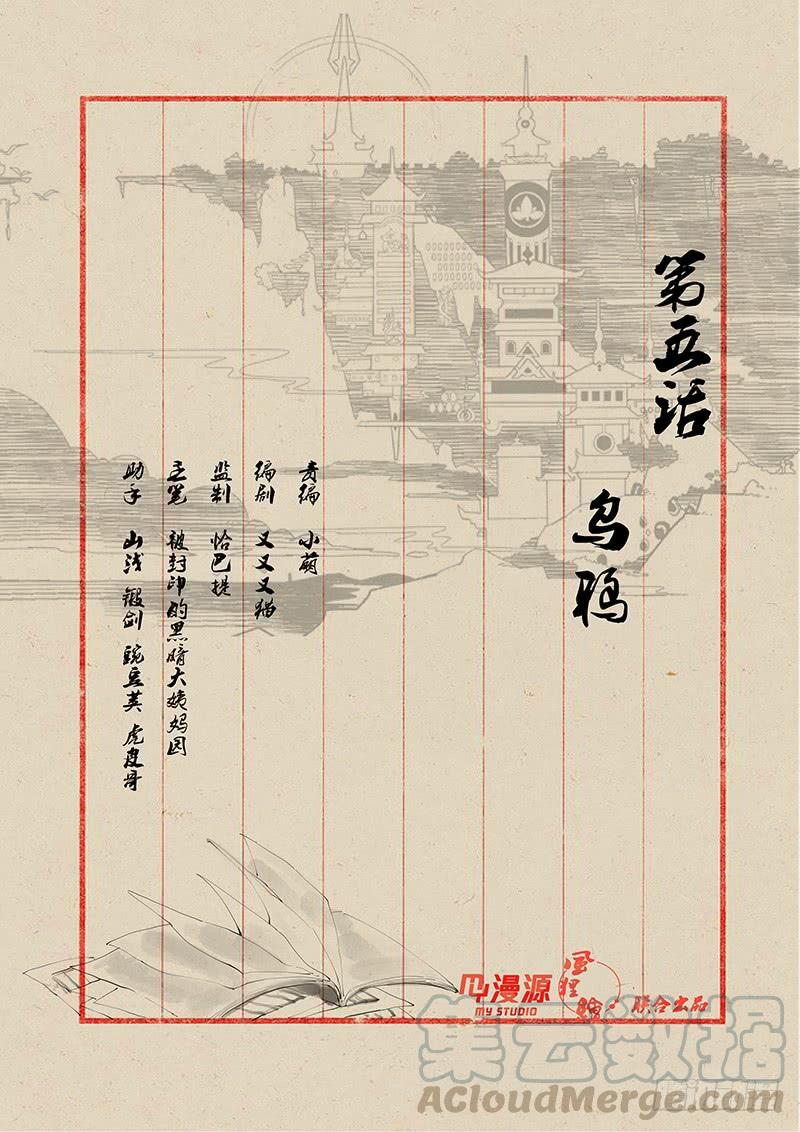 第五话
乌鸦
责编 小萌
编剧 又又又猫
监制 恰巴提
主笔 被封印的黑暗大姨妈园
助手 山浅 锻剑 豌豆荚 虎皮哥
漫源
MY STUDIO
风狸
联合出品
集云数据
ACloudMerge.com